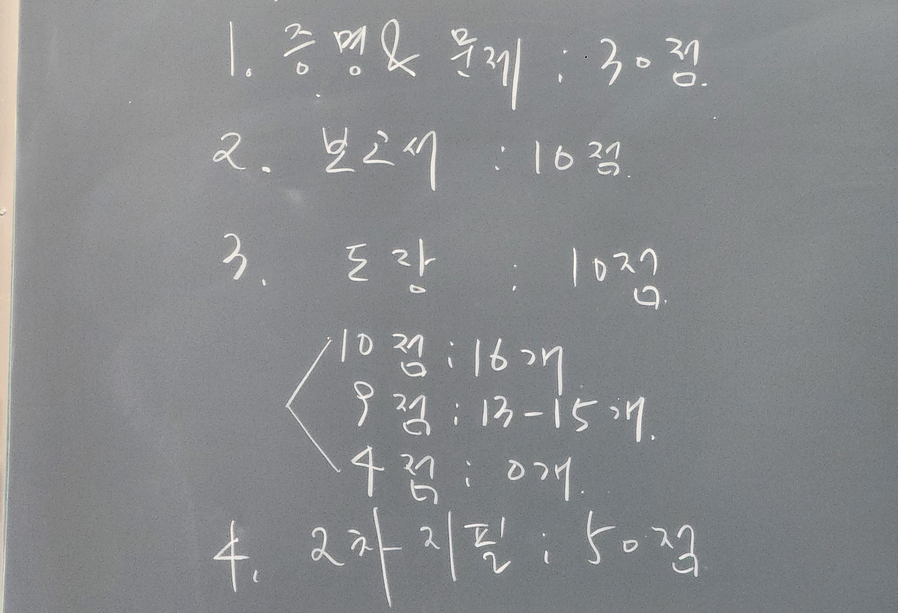 1. 증명& 문제 : 30점.
2. 보고서 : 10점.
3. 도장 : 10점.
10점 : 16개
9점 : 13-15개.
4점 : 0개.
4. 2차 지필 : 50점